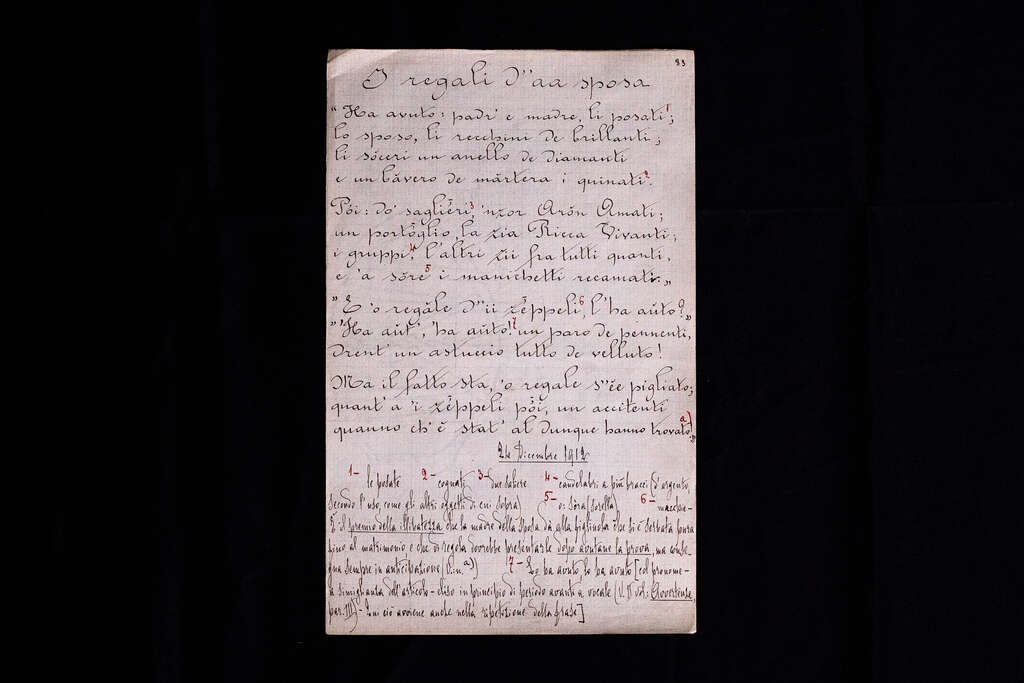 83
I regali d''aa sposa
"Ha avuto: padr' e madre, li posati¹;
lo sposo, li recchini de brillanti;
li sòceri un anello de diamanti
e un bàvero de màrtera i quinati².
Pói: do' saglièri³, 'nzor Aròn Amati;
un portòglio, la zia Ricca Vivanti;
i gruppi⁴, l'altri zii fra tutti quanti,
e 'a sòre⁵ i manichetti recamati."
"E 'o regàle d''ii zéppeli⁶, l'ha aùto?"
"'Ha aùt', 'ha aùto!⁷ un paro de pennenti,
drent' un astuccio tutto de velluto!
Ma il fatto sta, 'o regale s''ée pigliato;
quant' a 'i zéppeli pói, un accitenti
quanno ch'è stat' al dunque hanno trovato a)"
24 Dicembre 1912
1- le posate 2- cognati 3- due saliere 4- candelabri a più bracci (d'argento,
secondo l'uso, come gli altri oggetti di cui sopra) 5- o: sòra (sorella) 6- macchie-
È il premio della illibatezza che la madre della sposa dà alla figliuola che si è serbata pura
fino al matrimonio, e che di regola dovrebbe presentarle dopo avutane la prova, ma
sempre in anticipazione 7- Lo ha avuto, lo ha avuto [col pronome-
a simiglianza dell'articolo- eliso in principio di periodo avanti a vocale (V. II vol: Avvertenze,
par. III)- Qui ciò avviene anche nella ripetizione della frase]